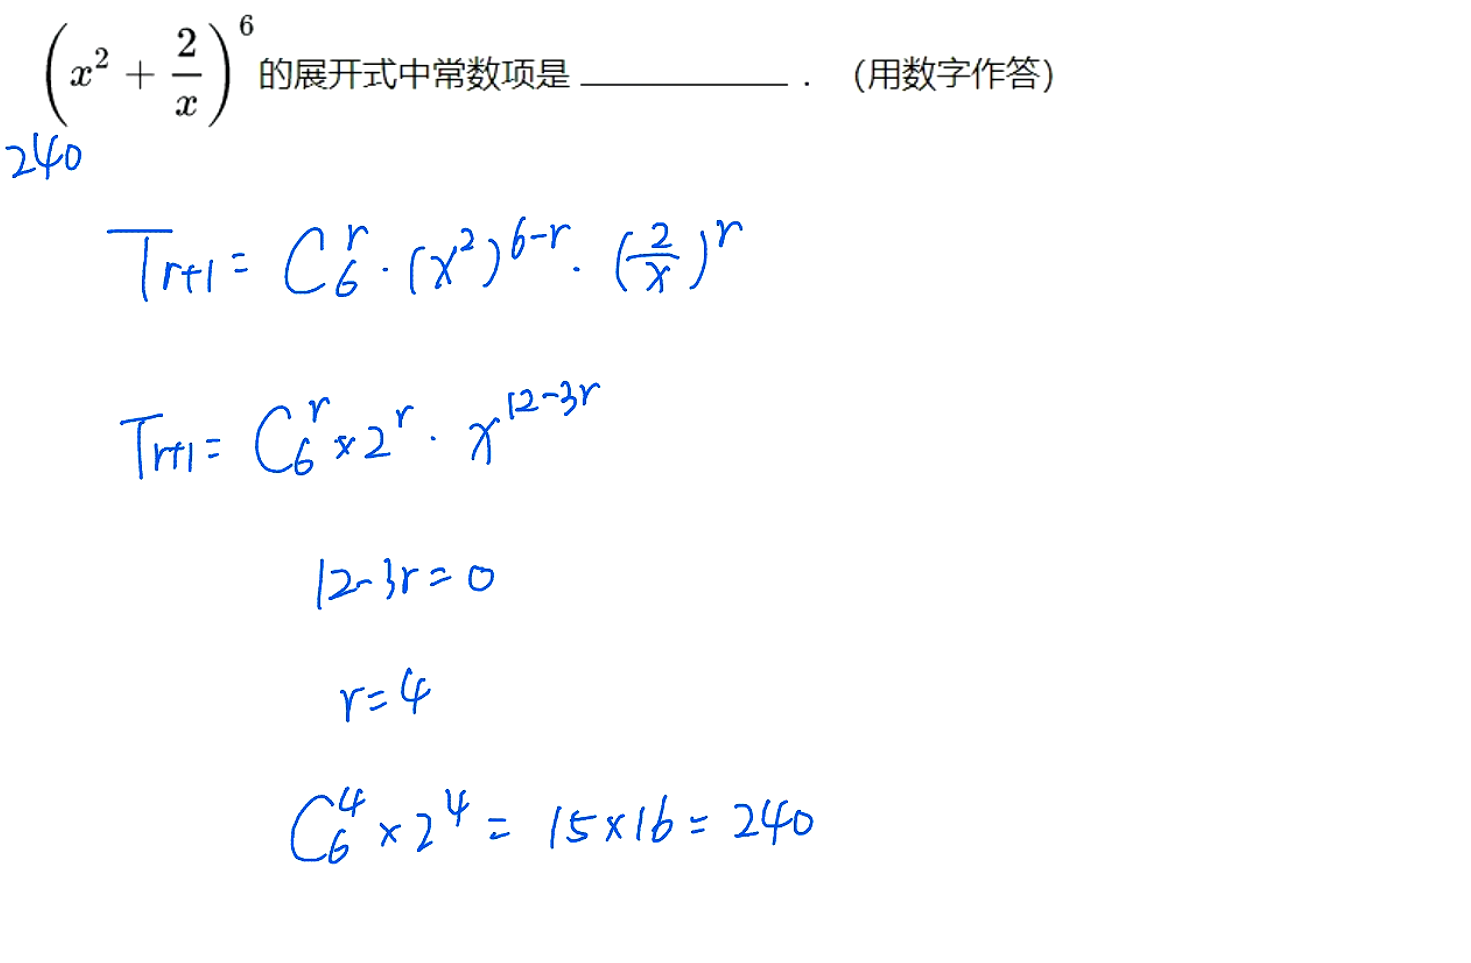 (x² + 2/x)⁶ 的展开式中常数项是 ________ . (用数字作答)
240
T_{r+1} = C_6^r · (x²)^{6-r} · (2/x)^r
T_{r+1} = C_6^r × 2^r · x^{12-3r}
12-3r=0
r=4
C_6^4 × 2^4 = 15×16 = 240